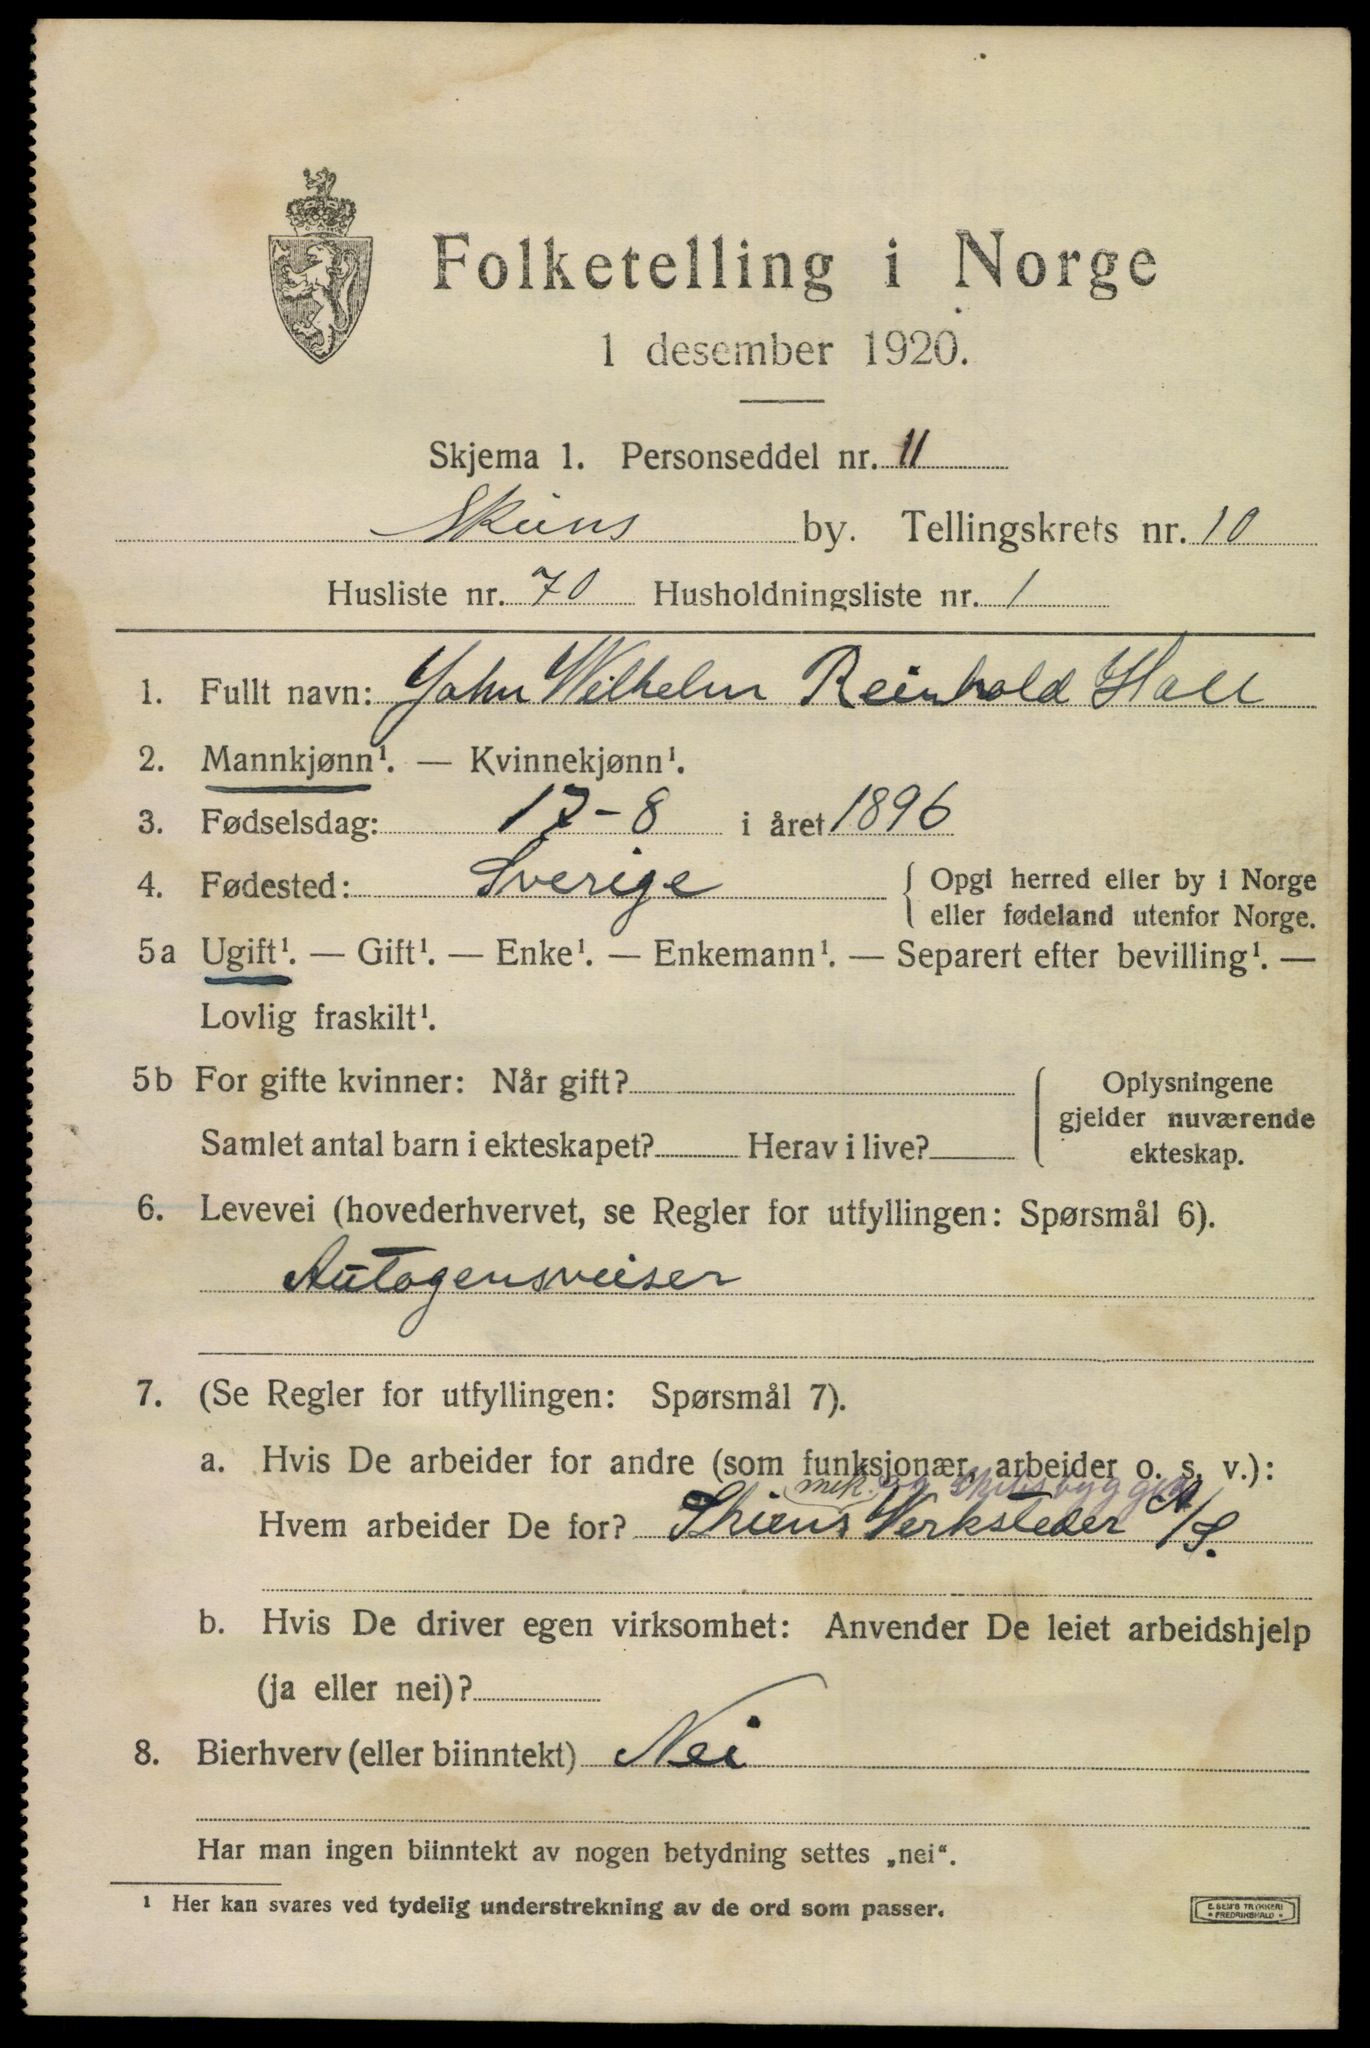 Folketelling i Norge
1 desember 1920.
Skjema 1. Personseddel nr. 11
Skiens by. Tellingskrets nr. 10
Husliste nr. 70 Husholdningsliste nr. 1
1. Fullt navn: John Wilhelm Reinhold Hall
2. Mannkjønn¹. — Kvinnekjønn¹.
3. Fødselsdag: 17-8 i året 1896
4. Fødested: Sverige { Opgi herred eller by i Norge
eller fødeland utenfor Norge.
5a Ugift¹. — Gift¹. — Enke¹. — Enkemann¹. — Separert efter bevilling¹. —
Lovlig fraskilt¹.
5b For gifte kvinner: Når gift?
Samlet antal barn i ekteskapet? Herav i live?
Oplysningene
gjelder nuværende
ekteskap.
6. Levevei (hovederhvervet, se Regler for utfyllingen: Spørsmål 6).
Autogensveiser
7. (Se Regler for utfyllingen: Spørsmål 7).
a. Hvis De arbeider for andre (som funksjonær, arbeider o. s. v.):
mek. og Skibsbyggeri
Hvem arbeider De for? Skiens Verksteder A/S.
b. Hvis De driver egen virksomhet: Anvender De leiet arbeidshjelp
(ja eller nei)?
8. Bierhverv (eller biinntekt) Nei
Har man ingen biinntekt av nogen betydning settes „nei“.
¹ Her kan svares ved tydelig understrekning av de ord som passer.
E. SEM'S TRYKKERI
• FREDRIKSHALD •